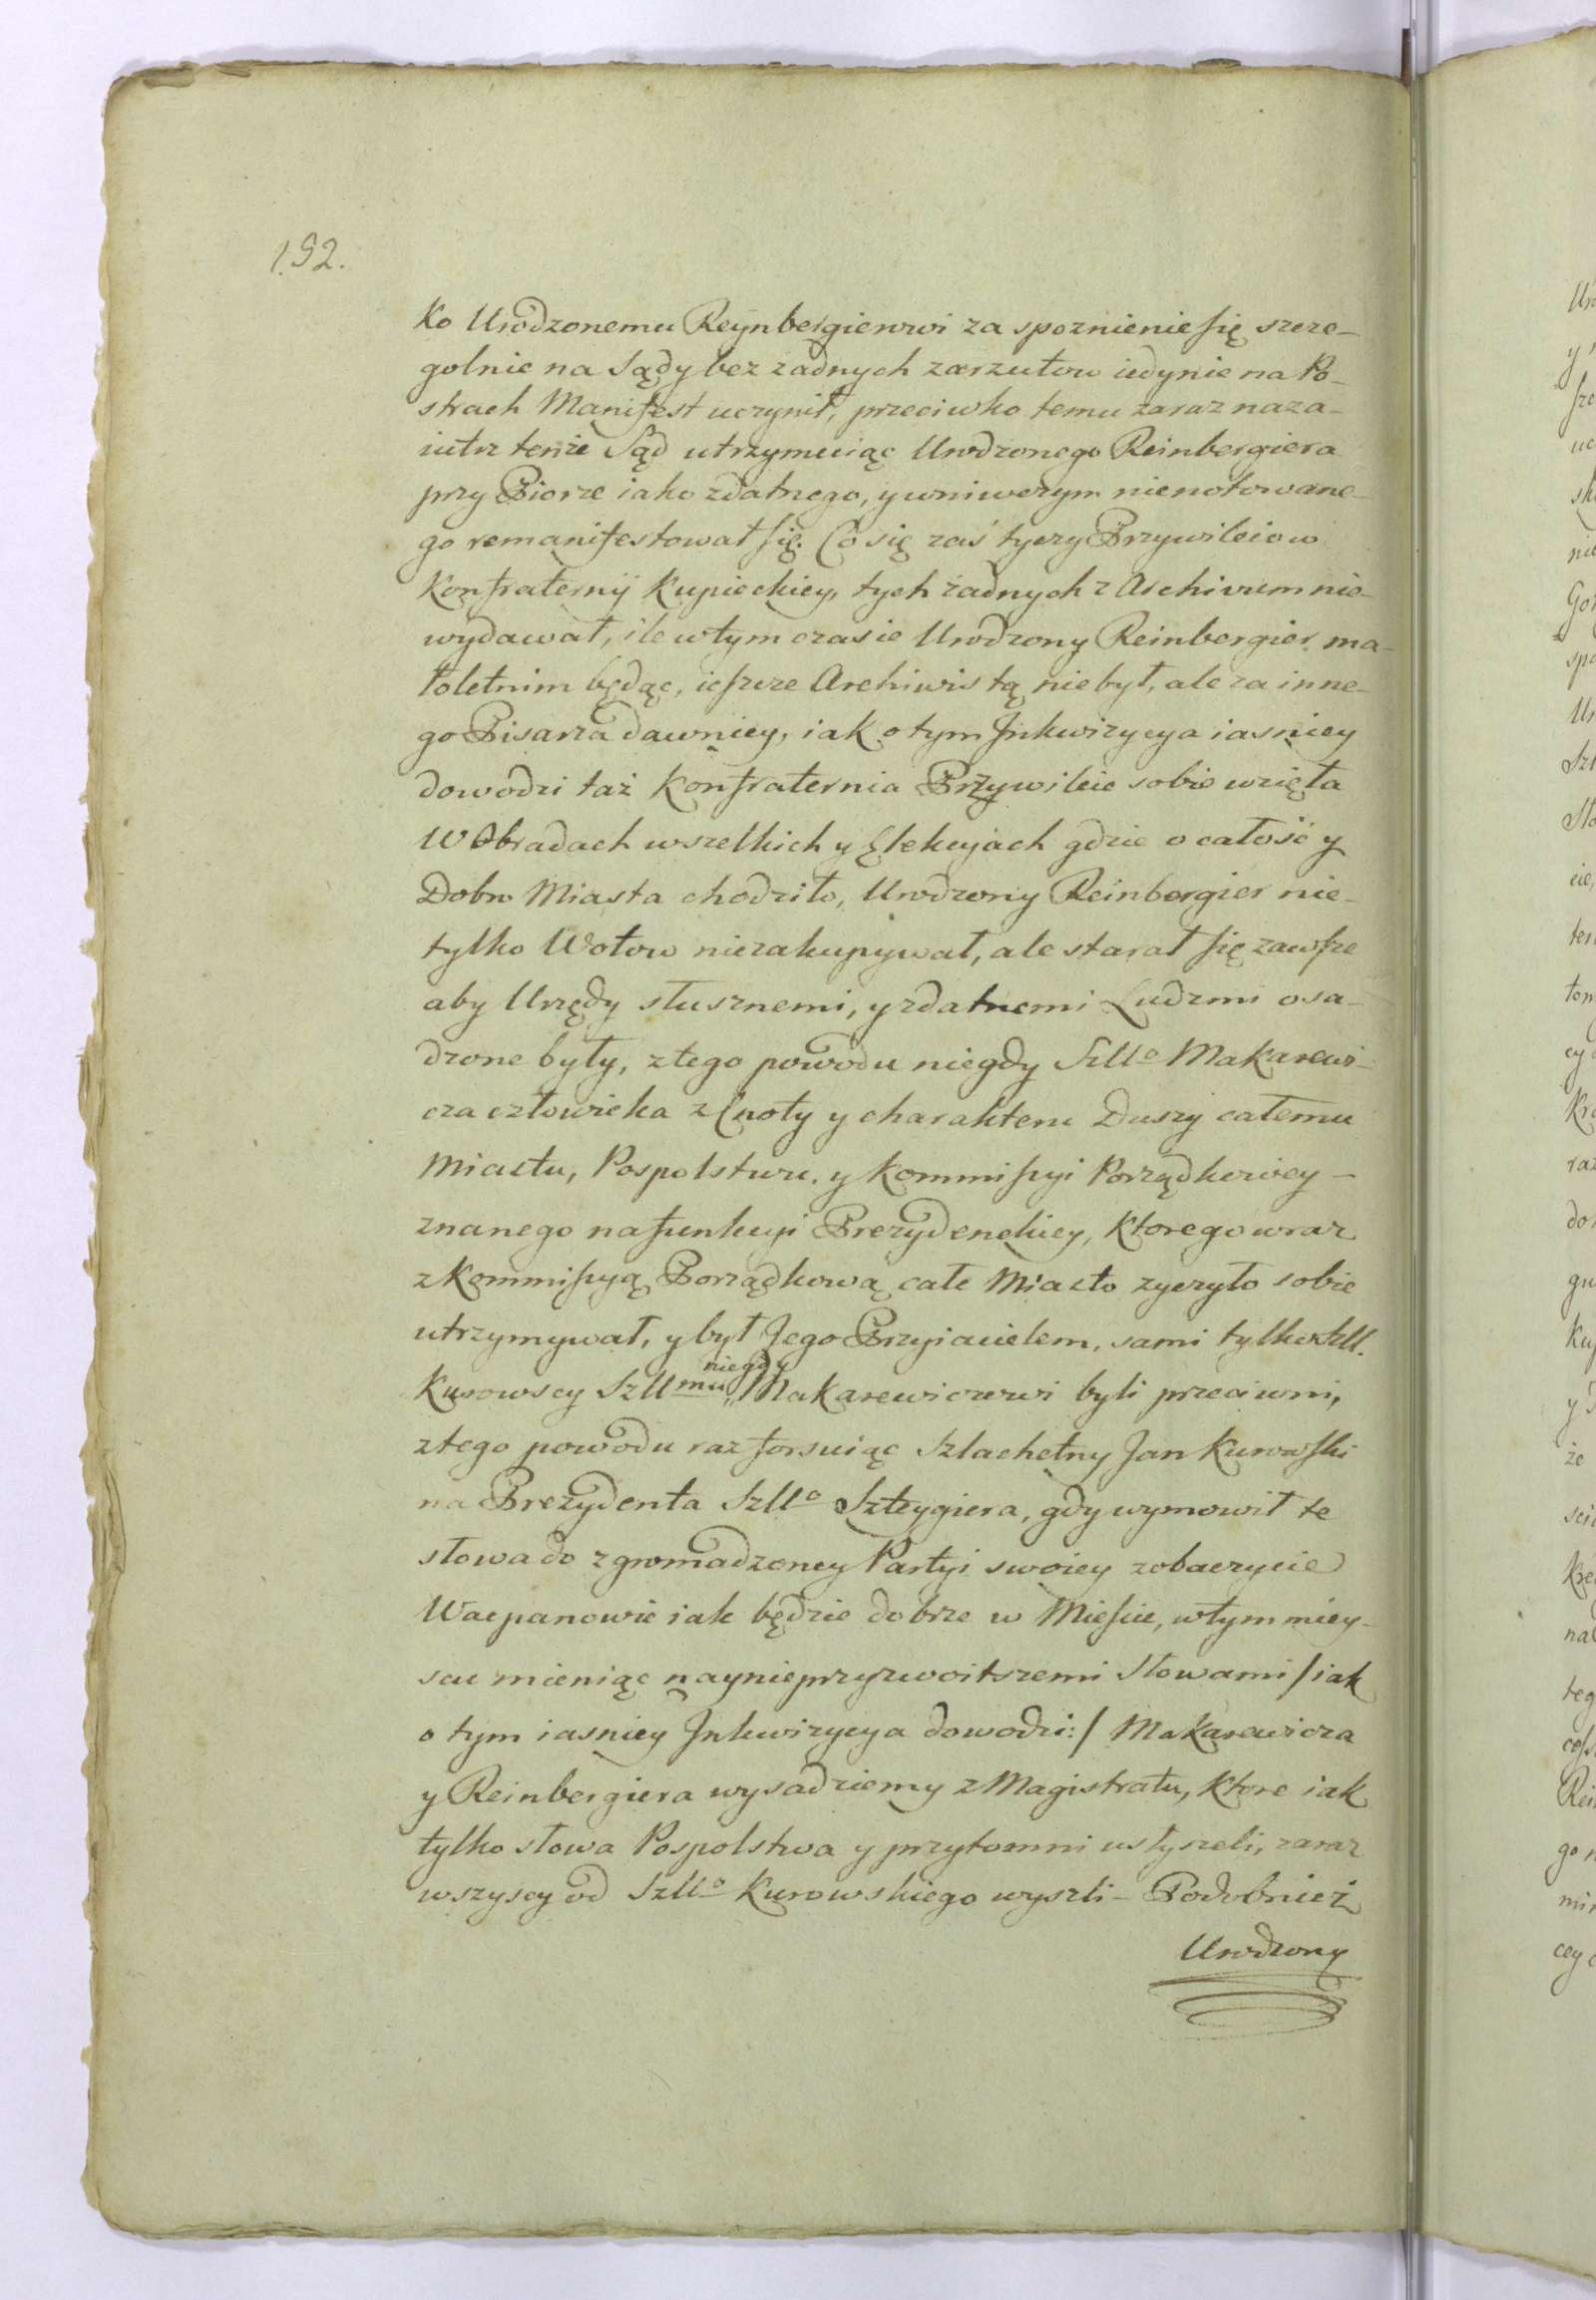 192.
ko Urodzonemu Reynbergierowi za spoznienie się szcze-
golnie na Sądy bez żadnych zarzutow iedynie na Po-
strach Manifest uczynił, przeciwko temu zaraz naza-
iutrz tenże Sąd utrzymuiąc Urodzonego Reinbergiera
przy Piorze iako zdatnego, y wniwczym nienotowane-
go remanifestował się. Co się zaś tyczy Przywileiow
Konfraternij Kupieckiey, tych żadnych z Archivum nie-
wydawał, ile wtym czasie Urodzony Reinbergier ma-
łoletnim będąc, ieszcze Archiwistą nie był, ale za inne-
go Pisarza dawniey, iak o tym Inkwizycya iasniey
dowodzi taż Konfraternia Przywileie sobie wzięła
W Obradach wszelkich y Elekcyach gdzie o całość y
Dobro Miasta chodziło, Urodzony Reinbergier nie-
tylko Wotow niezakupywał, ale starał się zawsze
aby Urzędy słusznemi, y zdatnemi Ludzmi osa-
dzone były, z tego powodu niegdy Szll° Makarewi-
cza człowieka z Cnoty y charakteru Duszy całemu
Miastu, Pospolstwu, y Kommissyi Porządkowey -
znanego na funkcyi Prezydenckiey, ktorego wraz
z Kommissyą Porządkową całe Miasto zyczyło sobie
utrzymywał, y był Jego Przyiacielem, sami tylko Szll.
niegdy
Kurowscy Szllmu Makarewiczowi byli przeciwni,
ztego powodu raz forsuiąc Szlachetny Jan Kurowski
na Prezydenta Szll° Szteygiera, gdy wymowił te
słowa do zgromadzoney Partyi swoiey zobaczycie
Wacpanowie iak będzie dobrze w Mieście, wtym miey-
scu mieniąc naynieprzyzwoitszemi Słowami / iak
o tym iasniey Inkwizycya dowodzi: / Makarewicza
y Reinbergiera wysadziemy z Magistratu, ktore iak
tylko słowa Pospolstwa y przytomni usłyszeli, zaraz
wszyscy od Szll° Kurowskiego wyszli - Podobnież
Urodzony